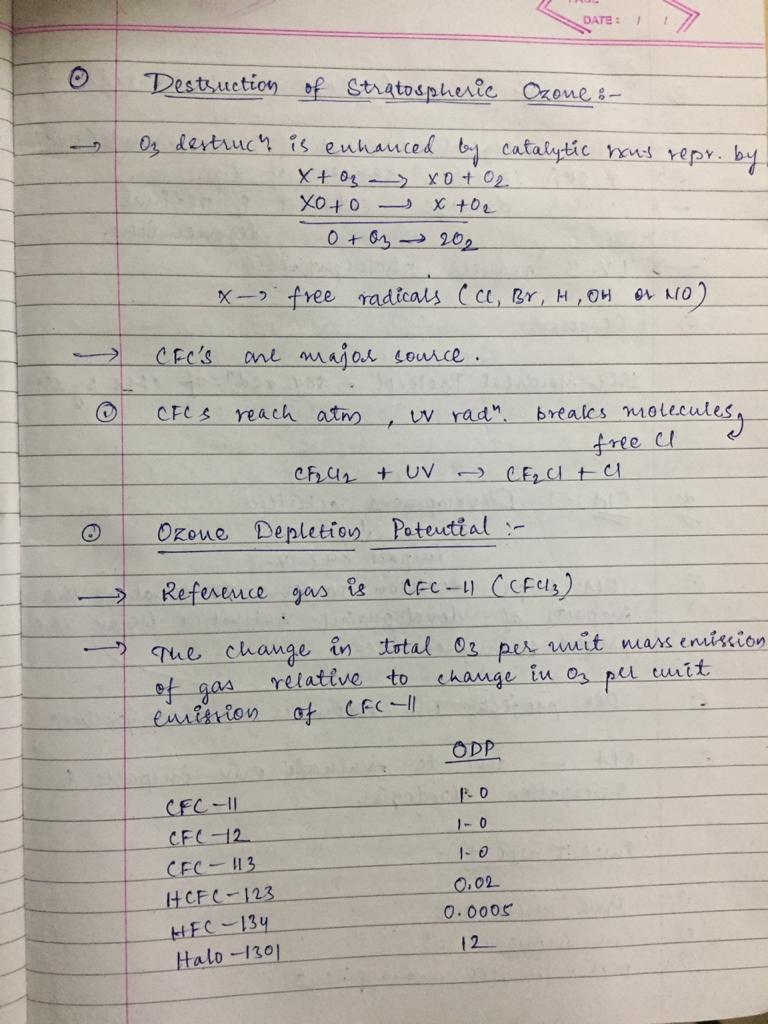 PAGE
DATE: / /
⊙ Destruction of Stratospheric Ozone :-
→ O3 destrucn is enhanced by catalytic rxns repr. by
X + O3 → XO + O2
XO + O → X + O2
O + O3 → 2O2
X → free radicals (Cl, Br, H, OH or NO)
→ CFC's are major source.
⊙ CFCs reach atm, UV radn. breaks molecules,
free Cl
CF2Cl2 + UV → CF2Cl + Cl
⊙ Ozone Depletion Potential :-
→ Reference gas is CFC-11 (CFCl3)
→ The change in total O3 per unit mass emission
of gas relative to change in O3 per unit
emission of CFC-11
ODP
CFC-11 1.0
CFC-12 1.0
CFC-113 1.0
HCFC-123 0.02
HFC-134 0.0005
Halo-1301 12